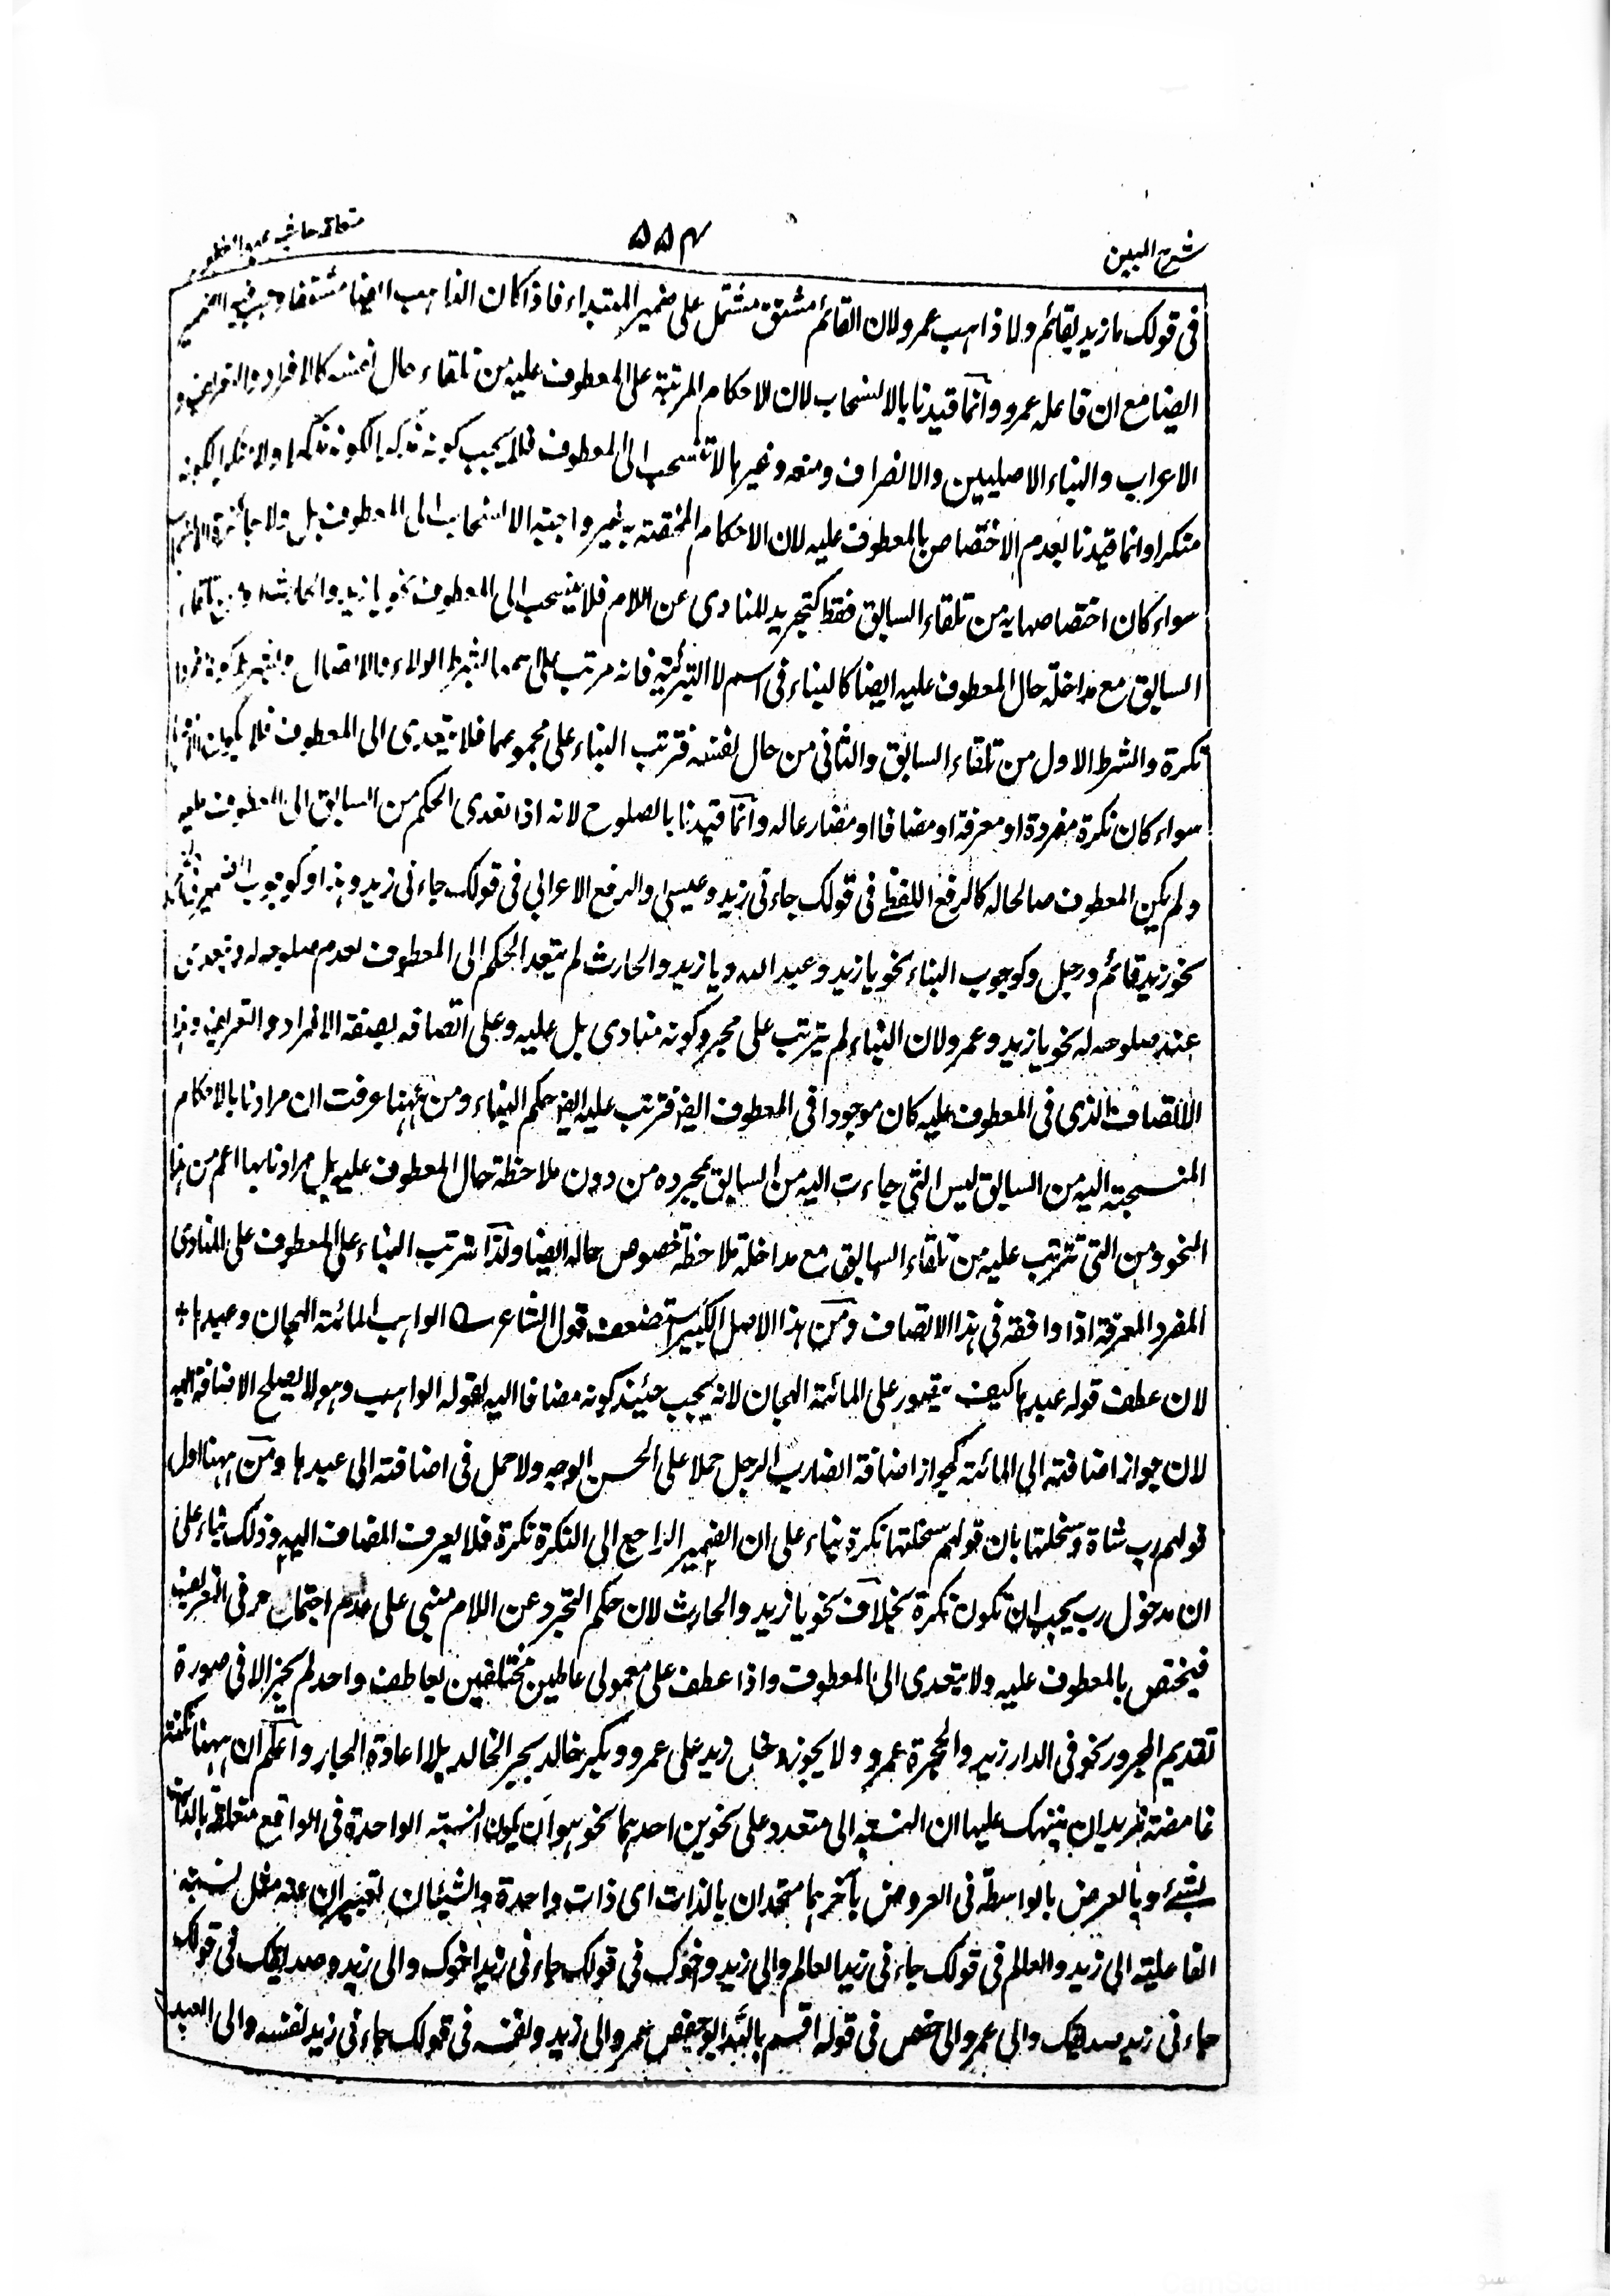 شرح المبین
۵۵۴
فی قولک ما زید بقائم ولا ذاہب عمرو لان القائم مشتق مشتمل علی ضمیر المبتداء فاذا کان الذاہب ایضا مشتقا وجب فیہ الضمیر
ایضا مع ان فاعلہ عمرو وانما قیدنا بالانسحاب لان الاحکام المرتبۃ علی المعطوف علیہ من تلقاء حال نفسہ کالافراد والتعریف و
الاعراب والبناء الاصلیین والانصراف ومنعہ وغیرہا لا تنسحب الی المعطوف فلا یجب کونہ
منکرا وانما قیدنا بعدم الاختصاص بالمعطوف علیہ لان الاحکام المختصۃ بہ غیر واجبۃ الانسحاب الی المعطوف بل ولا جائزۃ
سواء کان اختصاصہا بہ من تلقاء السابق فقط کتجرید المنادی عن اللام فلا ینسحب الی المعطوف نحو یا زید والحارث
السابق مع مداخلۃ حال المعطوف علیہ ایضا کالبناء فی اسم لا التبرئۃ فانہ مرتب علی اسمہا بشرط الولاء والاتصال وبشرط کونہ مفردا
نکرۃ والشرط الاول من تلقاء السابق والثانی من حال نفسہ فترتب البناء علی مجموعہما فلا یتعدی الی المعطوف فلا یکون
سواء کان نکرۃ مفردۃ او معرفۃ او مضافا او مضارعا لہ وانما قیدنا بالصلوح لانہ اذا تعدی الحکم من السابق الی المعطوف علیہ
ولم یکن المعطوف صالحا لہ کالرفع اللفظی فی قولک جاءنی زید وعیسی والرفع الاعرابی فی قولک جاءنی زید وہذا وکوجوب الضمیر
نحو زید قائم ورجل وکوجوب البناء نحو یا زید وعبد اللہ ویا زید والحارث لم یتعد الحکم الی المعطوف لعدم صلوحہ لہ وتعدی
عند صلوحہ لہ نحو یا زید وعمرو لان البناء لم یترتب علی مجرد کونہ منادی بل علیہ وعلی اتصافہ بصفۃ الافراد والتعریف وہذا
الاتصاف الذی فی المعطوف علیہ کان موجودا فی المعطوف ایض فترتب علیہ ایض حکم البناء ومن ہہنا عرفت ان مرادنا بالاحکام
المنسحبۃ الیہ من السابق لیس التی جاءت الیہ من السابق بمجردہ من دون ملاحظۃ حال المعطوف علیہ بل مرادنا بہا اعم من ہذا
النحو ومن التی تترتب علیہ من تلقاء السابق مع مداخلۃ ملاحظۃ خصوص حالہ ایضا ولذا ترتب البناء علی المعطوف علی المنادی
المفرد المعرفۃ اذا وافقہ فی ہذا الاتصاف ومن ہذا الاصل الکبیر استضعف قول الشاعر الواہب المائۃ الہجان وعبدہا
لان عطف قولہ عبدہا کیف یتصور علی المائۃ الہجان لانہ یجب حینئذ کونہ مضافا الیہ لقولہ الواہب وہو لا یصلح الاضافۃ الیہ
لان جواز اضافتہ الی المائۃ کجواز اضافۃ الضارب الرجل حملا علی الحسن الوجہ ولا حمل فی اضافتہ الی عبدہا ومن ہہنا اول
قولہم رب شاۃ وسخلتہا بان قولہم سخلتہا نکرۃ بناء علی ان الضمیر الراجع الی النکرۃ نکرۃ فلا یعرف المضاف الیہ وذلک بناء علی
ان مدخول رب یجب ان تکون نکرۃ بخلاف نحو یا زید والحارث لان حکم التجرد عن اللام مبنی علی عدم اجتماع حرفی التعریف
فیختص بالمعطوف علیہ ولا یتعدی الی المعطوف واذا عطف علی معمولی عاملین مختلفین بعاطف واحد لم یجز الا فی صورۃ
تقدیم المجرور نحو فی الدار زید والحجرۃ عمرو ولا یجوز دخل زید علی عمرو وبکر خالد بجر الخالد بلا اعادۃ الجار واعلم ان ہہنا نکتۃ
غامضۃ نرید ان ننبہک علیہا ان النسبۃ الی متعدد علی نحوین احدہما نحو ہو ان یکون النسبۃ الواحدۃ فی الواقع متعلقۃ بالذات
بشیء وبالعرض بالواسطۃ فی العروض بآخر ہما متحدان بالذات ای ذات واحدۃ والشیئان تعبیران عنہ مثل نسبۃ
الفاعلیۃ الی زید والعالم فی قولک جاءنی زید العالم والی زید واخوک فی قولک جاءنی زید اخوک والی زید وصدیقک فی قولک
جاءنی زید صدیقک والی عمر والی حفص فی قولہ اقسم باللہ ابو حفص عمر والی زید ونفسہ فی قولک جاءنی زید نفسہ والی العبد